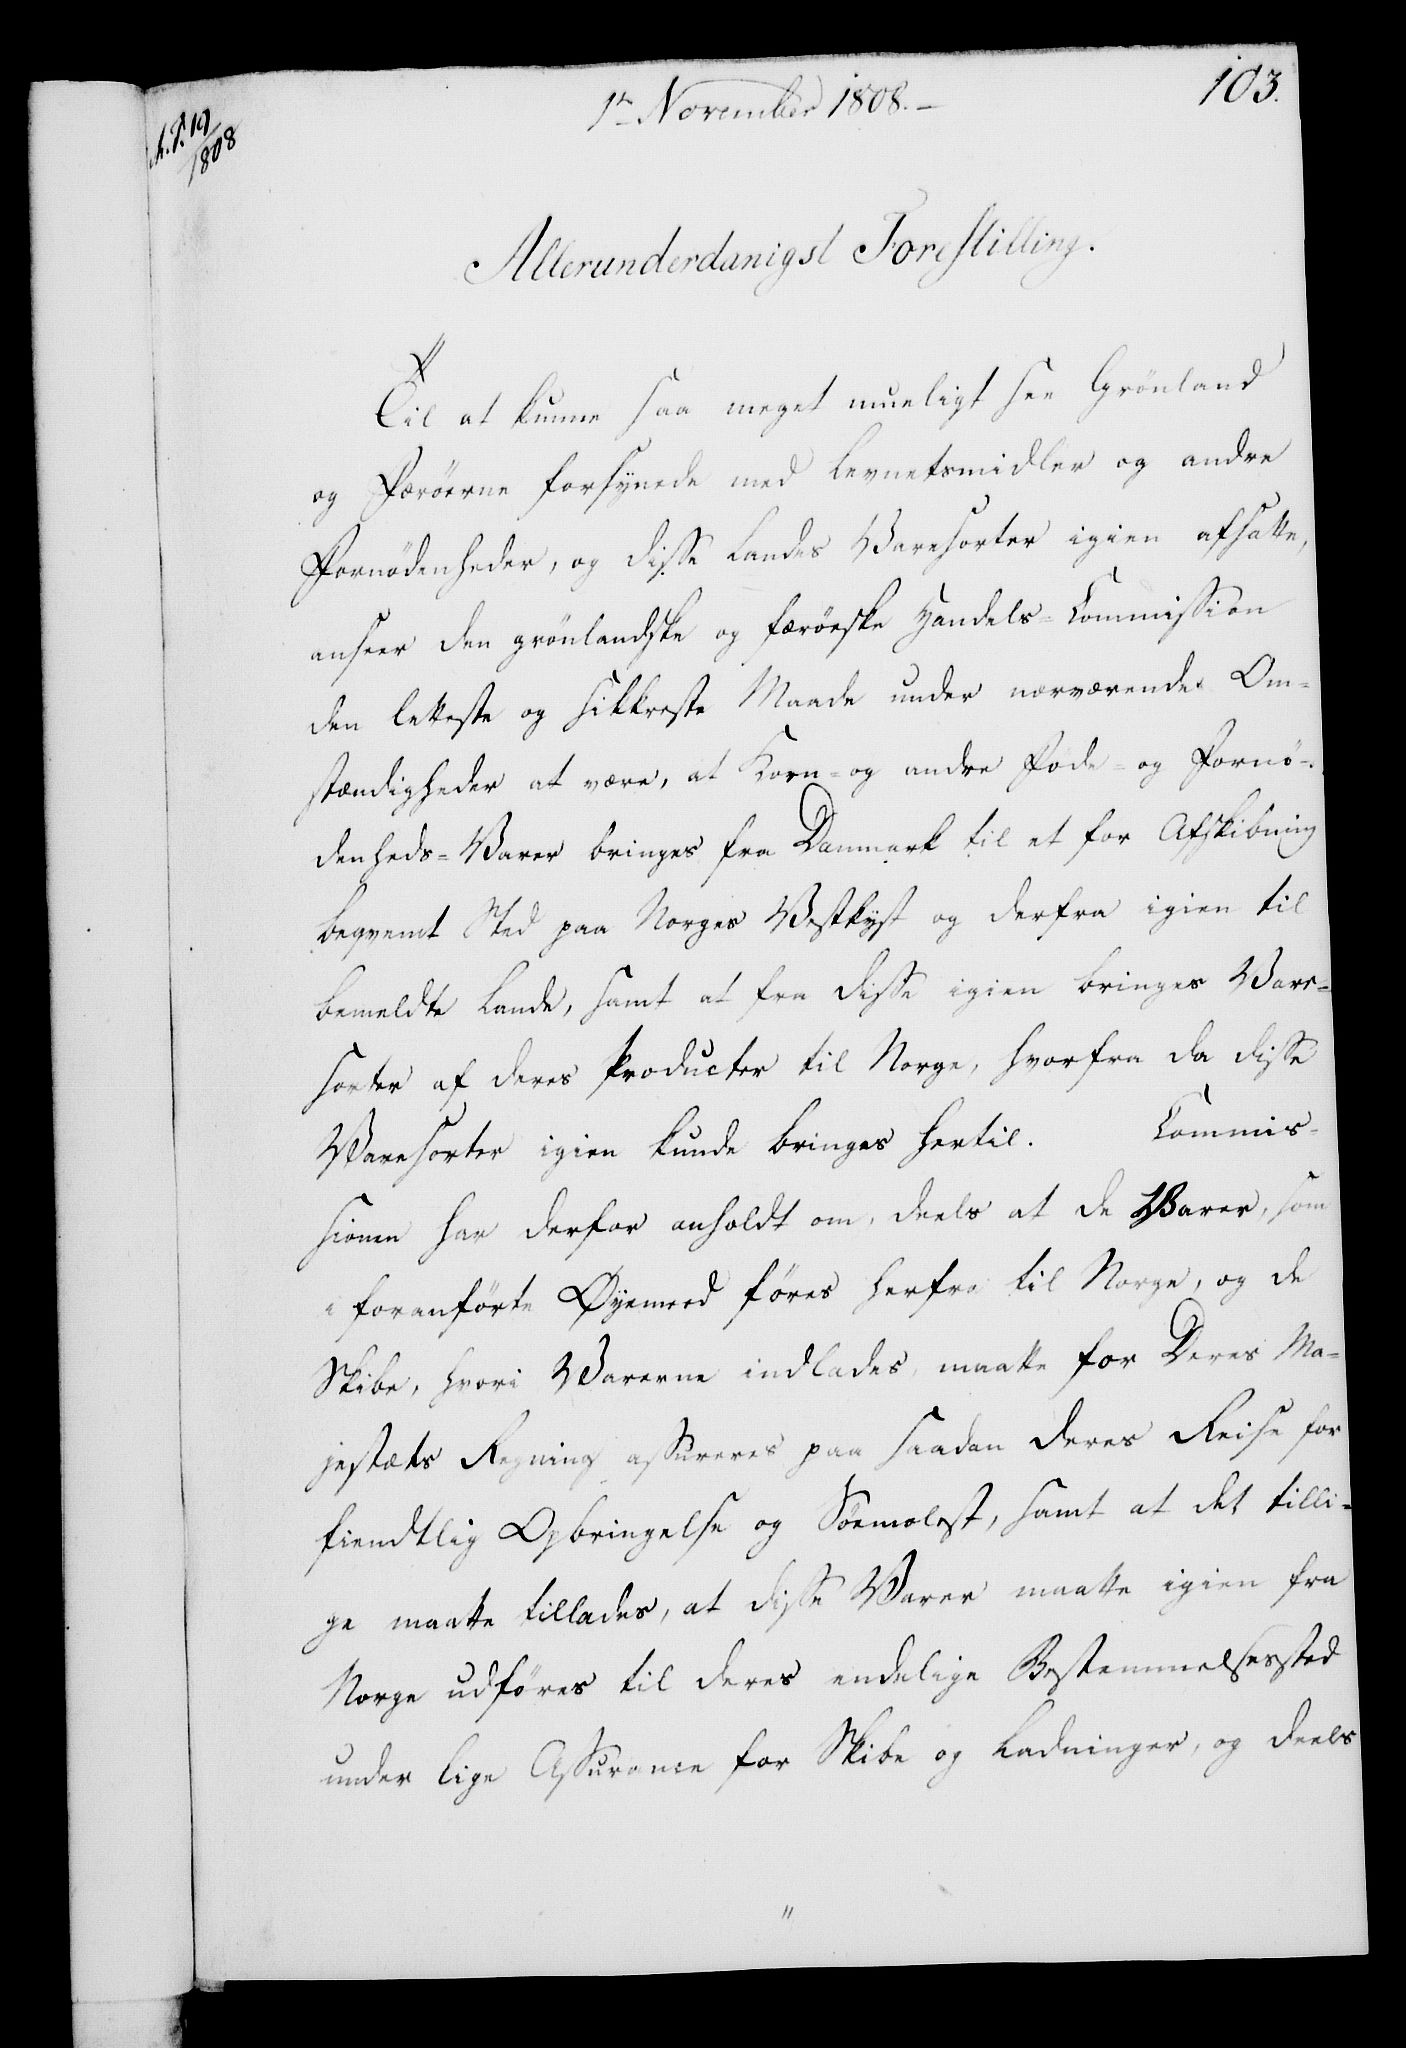 1te November 1808.-
103.
19/1808
Allerunderdanigst Forestilling.
Til at kunne saa meget mueligt see Grönland
og Færöerne forsÿnede med Levnetsmidler og andre
Fornödenheder, og disse Landes Varesorter igien afsatte,
anseer den grönlandske og færöeske Handels-Commission
den letteste og sikkreste Maade under nærværende Om-
stændigheder at være, at Korn- og andre Föde- og Fornö-
denheds-Varer bringes fra Danmark til et for Afskibning
beqvemt Sted paa Norges Vestkÿst og derfra igien til
bemeldte Lande, samt at fra disse igien bringes Vare-
sorter af deres Producter til Norge, hvorfra da disse
Varesorter igien kunde bringes hertil. Commis-
sionen har derfor anholdt om, deels at de Varer, som
i foranförte Øÿemeed föres herfra til Norge, og de
Skibe, hvori Varerne indlades, maatte for Deres Ma-
jestæts Regning assureres paa saadan deres Reise for
fiendtlig Opbringelse og Söemolest, samt at det tilli-
ge maatte tillades, at disse Varer maatte igien fra
Norge udföres til deres endelige Bestemmelsessted
under lige Assurance for Skibe og Ladninger, og deels
"